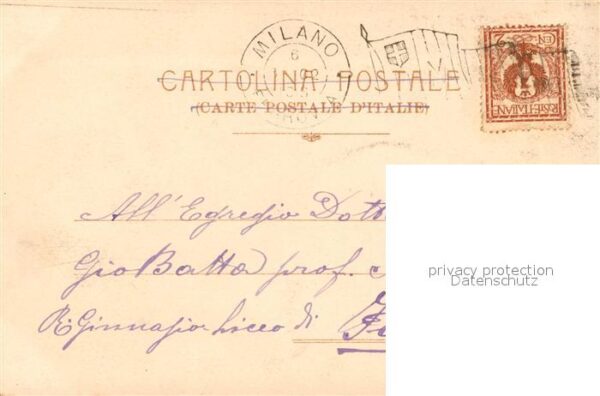 MILANO
6
CARTOLINA POSTALE
(CARTE POSTALE D'ITALIE)
CEN. 2
POSTE ITALIANE
All' Egregio Dott
Gio Batta prof.
R. Ginnasio Liceo di
privacy protection
Datenschutz